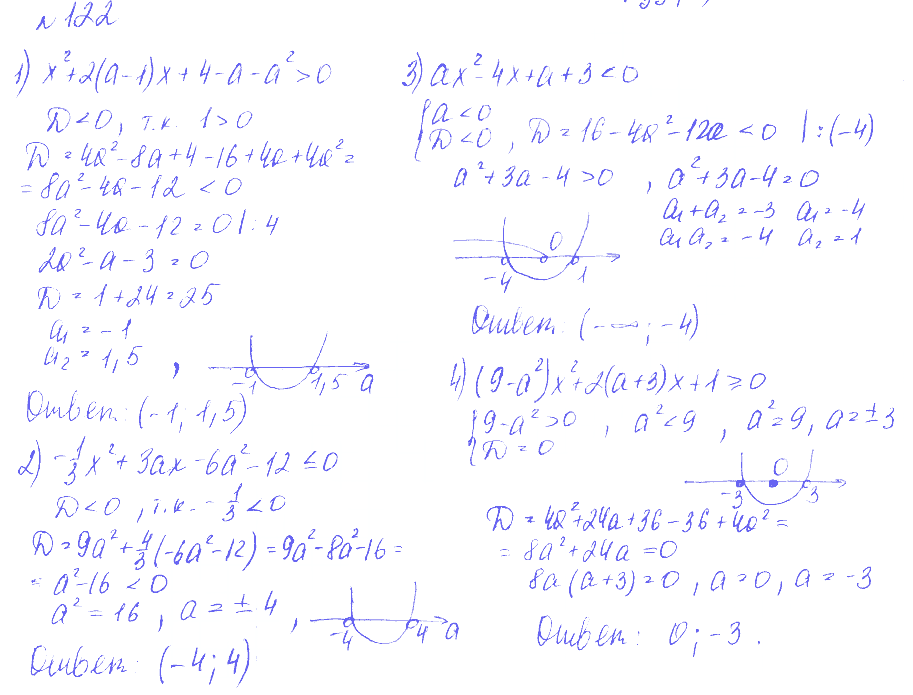 № 122
1) x²+2(a-1)x+4-a-a²>0
D<0, т.к. 1>0
D=4a²-8a+4-16+4a+4a²=
=8a²-4a-12<0
8a²-4a-12=0 |:4
2a²-a-3=0
D=1+24=25
a₁=-1
a₂=1,5 ,
-1 1,5 a
Ответ: (-1; 1,5)
2) -1/3x²+3ax-6a²-12≤0
D<0, т.к. -1/3<0
D=9a²+4/3(-6a²-12)=9a²-8a²-16=
=a²-16<0
a²=16, a=±4 ,
-4 4 a
Ответ: (-4; 4)
3) ax²-4x+a+3<0
{a<0
{D<0, D=16-4a²-12a<0 |:(-4)
a²+3a-4>0 , a²+3a-4=0
a₁+a₂=-3 a₁=-4
a₁a₂=-4 a₂=1
0
-4 1
Ответ: (-∞; -4)
4) (9-a²)x²+2(a+3)x+1≥0
{9-a²>0 , a²<9 , a²=9, a=±3
{D=0
0
-3 3
D=4a²+24a+36-36+4a²=
=8a²+24a=0
8a(a+3)=0, a=0, a=-3
Ответ: 0; -3.